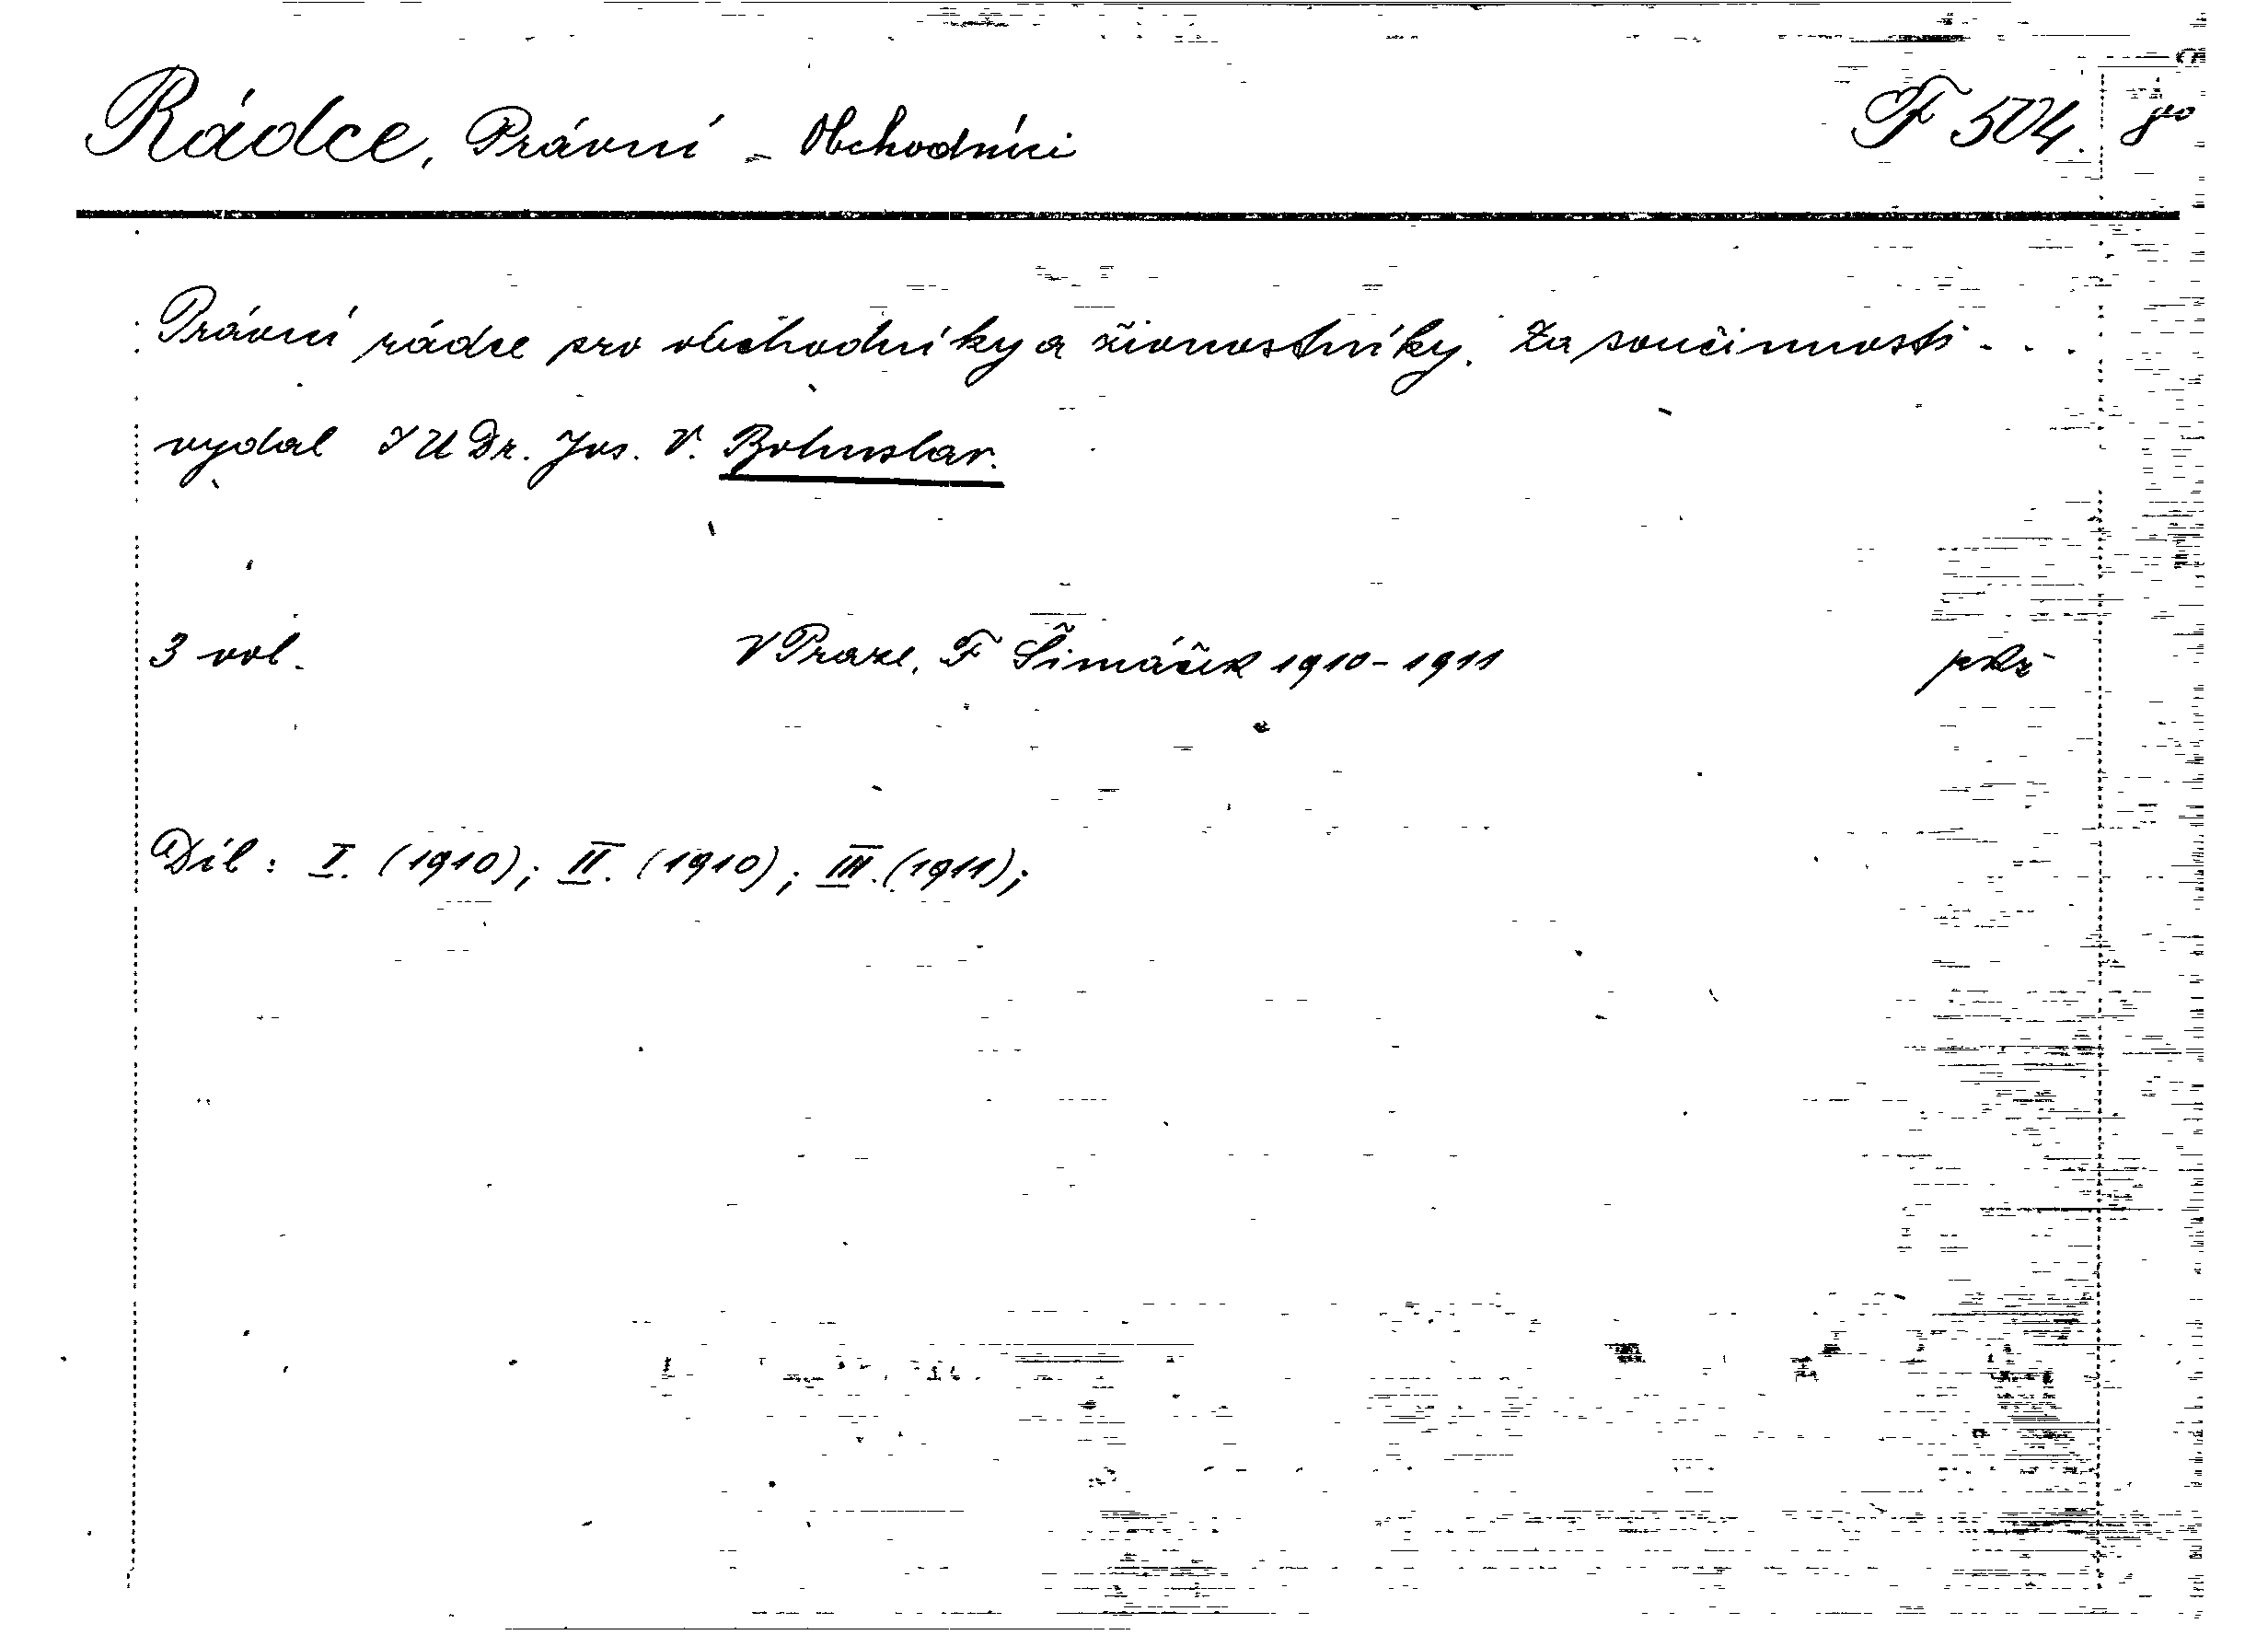 Rádce, Právní – Obchodníci F 504. 8º
Právní rádce pro obchodníky a živnostníky. Za součinnosti . . .
vydal JUDr. Jos. V. Bohuslav.
3 vol. V Praze, F Šimáček 1910-1911
Díl : I. (1910); II. (1910); III. (1911);